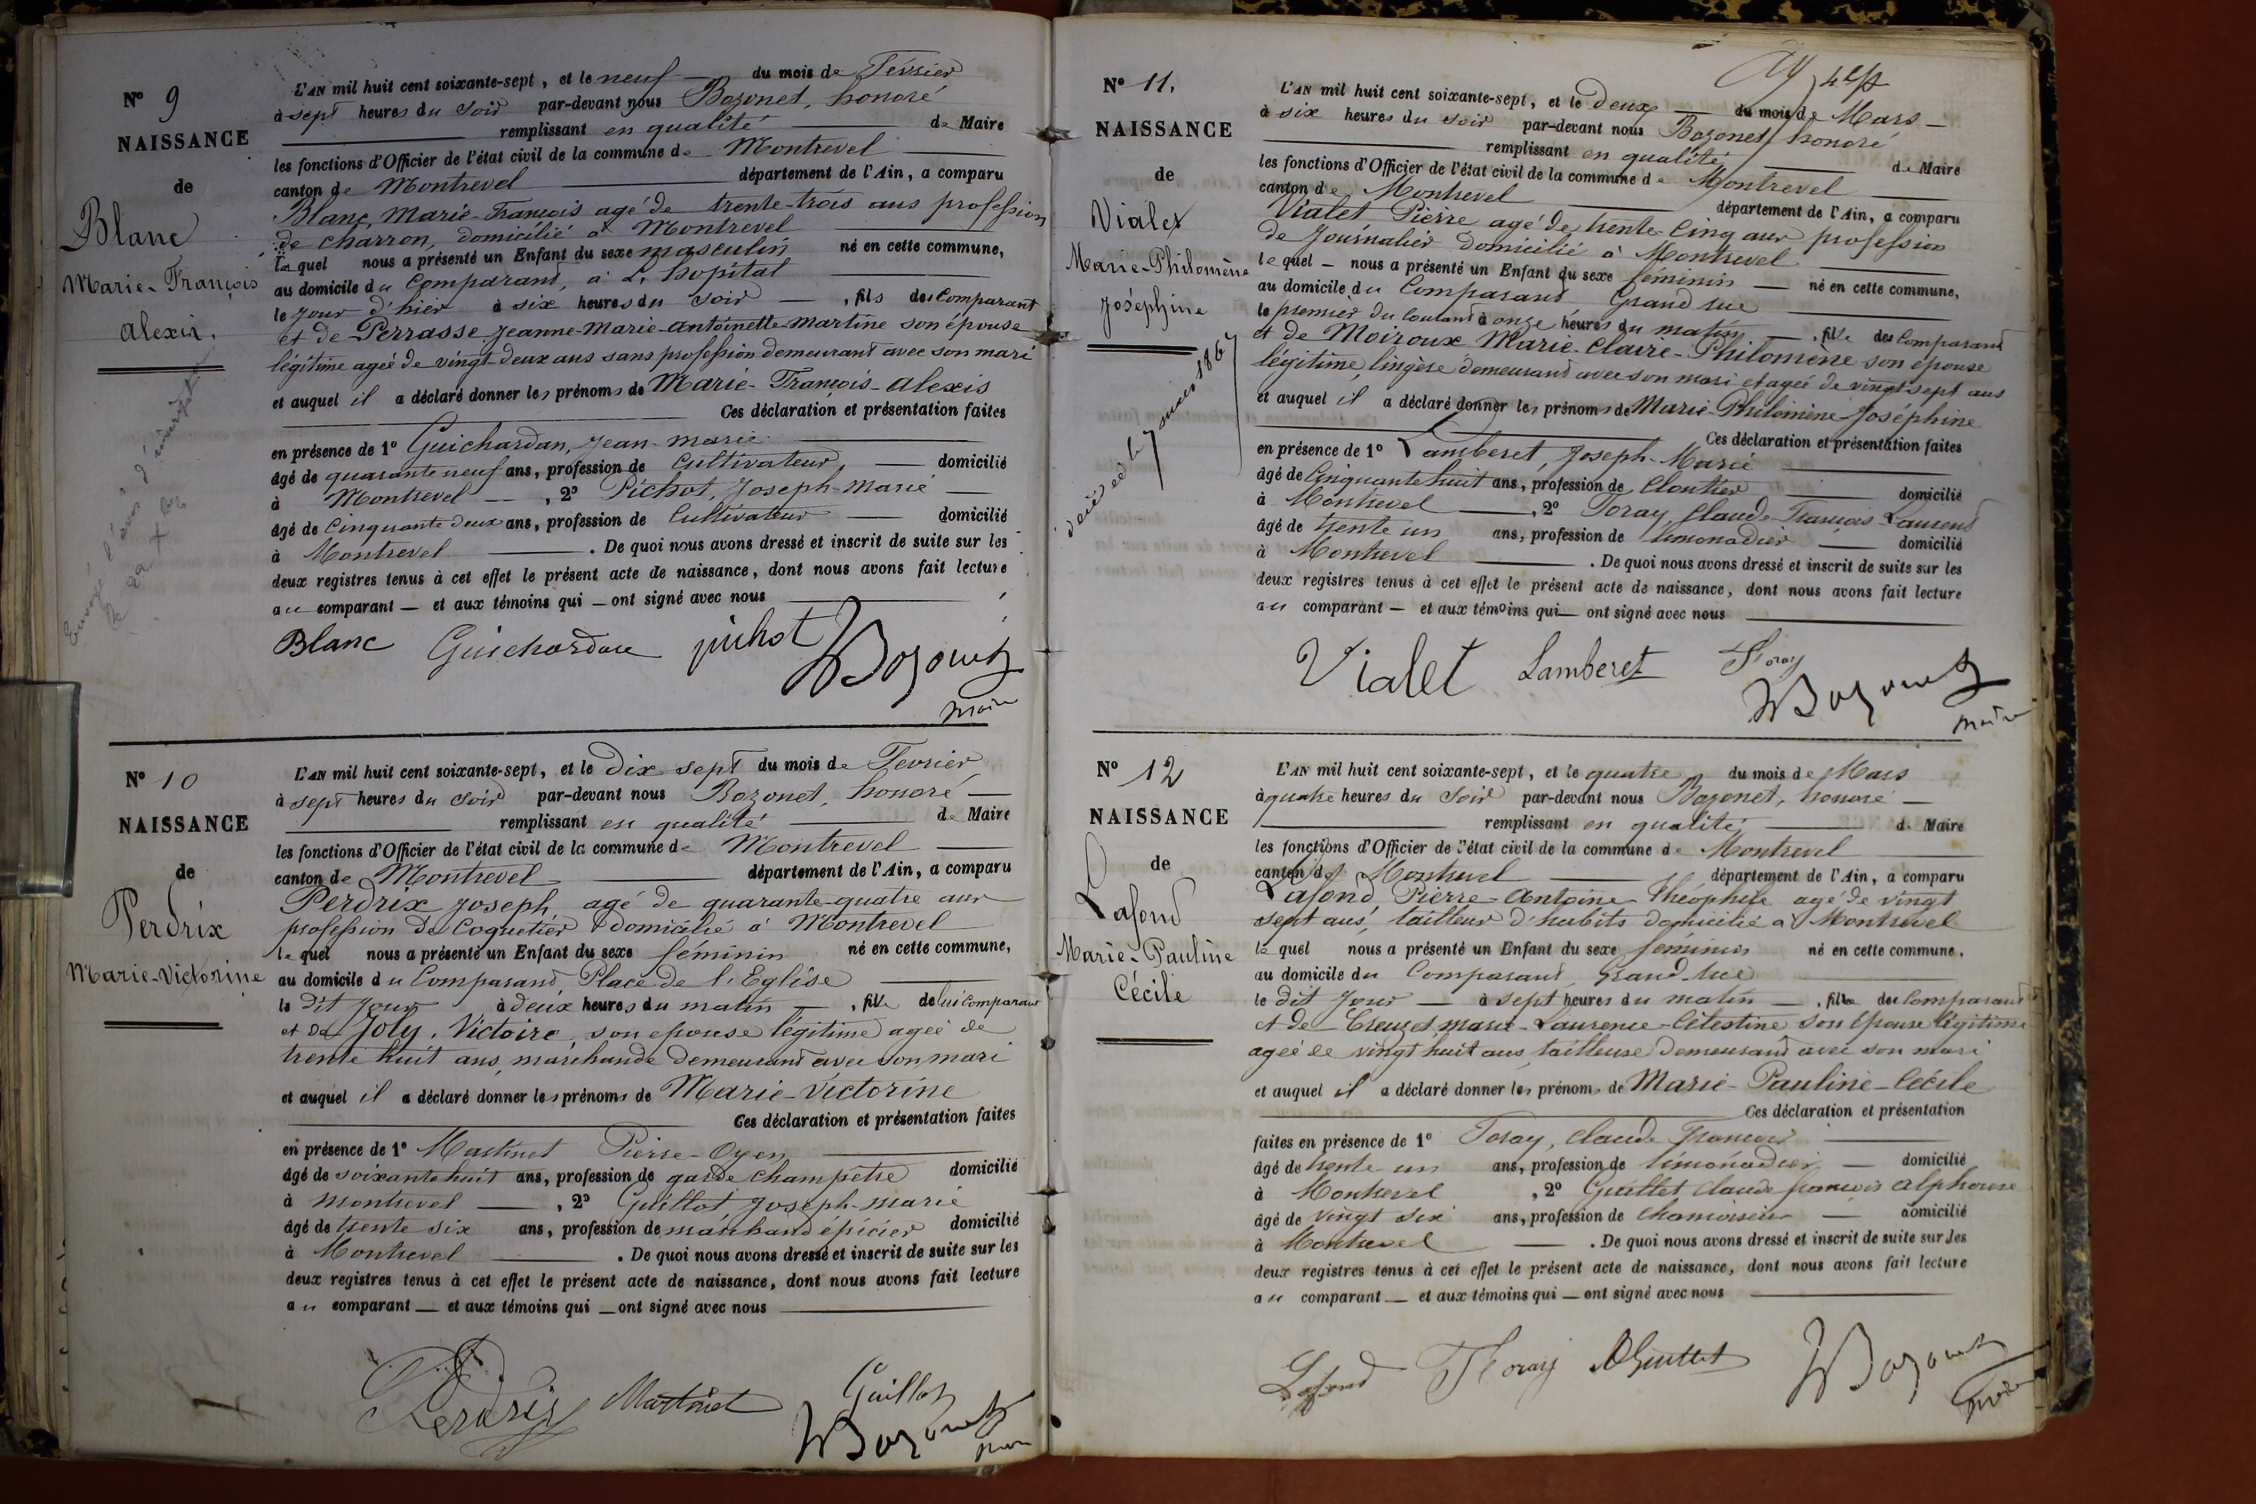 N° 9
NAISSANCE
de
Blanc
Marie-François
alexis.
L'AN mil huit cent soixante-sept, et le neuf — du mois de Février
à sept heures du soir par-devant nous Bozonet, honoré
remplissant en qualité — de Maire
les fonctions d'Officier de l'état civil de la commune de Montrevel
canton de Montrevel — département de l'Ain, a comparu
Blanc, Marie-François agé de trente-trois ans profession
de charron, domicilié à Montrevel
lequel nous a présenté un Enfant du sexe masculin né en cette commune,
au domicile du Comparant, à L'hopital
le jour d'hier à six heures du soir — , fils du Comparant
et de Perrasse Jeanne-Marie-antoinette-Martine son épouse
légitime agée de vingt deux ans sans profession demeurant avec son mari
et auquel il a déclaré donner les prénoms de Marie-François-alexis
Ces déclaration et présentation faites
en présence de 1° Guichardan, Jean-marie
âgé de quarante neuf ans, profession de Cultivateur, — domicilié
à Montrevel — , 2° Pichot, Joseph-Marie —
âgé de Cinquante deux ans, profession de Cultivateur — domicilié
à Montrevel — . De quoi nous avons dressé et inscrit de suite sur les
deux registres tenus à cet effet le présent acte de naissance, dont nous avons fait lecture
au comparant — et aux témoins qui — ont signé avec nous
Blanc Guichardan pichot HBozonet
maire
N° 10
NAISSANCE
de
Perdrix
Marie-Victorine
L'AN mil huit cent soixante-sept, et le Dix sept du mois de Fevrier
à sept heures du soir par-devant nous Bozonet, honoré —
remplissant en qualité — de Maire
les fonctions d'Officier de l'état civil de la commune de Montrevel
canton de Montrevel — département de l'Ain, a comparu
Perdrix Joseph agé de quarante-quatre ans
profession de Coquetier domicilié à Montrevel
lequel nous a présenté un Enfant du sexe féminin né en cette commune,
au domicile du Comparant Place de l'Eglise
le dit jour à deux heures du matin — , fille de lui Comparant
et de Joly, Victoire, son epouse légitime agée de
trente huit ans, marchande demeurant avec son mari
et auquel il a déclaré donner les prénoms de Marie-Victorine
Ces déclaration et présentation faites
en présence de 1° Martinet Pierre-Oyen
âgé de soixante huit ans, profession de garde champetre domicilié
à Montrevel — , 2° Guillot Joseph-marie
âgé de trente six ans, profession de marchand épicier domicilié
à Montrevel — . De quoi nous avons dressé et inscrit de suite sur les
deux registres tenus à cet effet le présent acte de naissance, dont nous avons fait lecture
au comparant — et aux témoins qui — ont signé avec nous
Perdrix Martinet Guillot
HBozonet
N° 11.
NAISSANCE
de
Vialet
Marie-Philomène
Joséphine
L'AN mil huit cent soixante-sept, et le deux — du mois de Mars —
à six heures du soir par-devant nous Bozonet, honoré
remplissant en qualité — de Maire
les fonctions d'Officier de l'état civil de la commune de Montrevel
canton de Montrevel — département de l'Ain, a comparu
Vialet Pierre agé de trente-Cinq ans profession
de Journalier domicilié à Montrevel
lequel — nous a présenté un Enfant du sexe féminin — né en cette commune,
au domicile du Comparant Grand rue
le premier du Courant à onze heures du matin — , fille du Comparant
et de Moiroux Marie-Claire-Philomène son épouse
légitime, lingère demeurant avec son mari et agée de vingt-sept ans
et auquel il a déclaré donner les prénoms de Marie-Philomène-Joséphine
Ces déclaration et présentation faites
en présence de 1° Lamberet, Joseph-Marie
âgé de Cinquante huit ans, profession de Cloutier — domicilié
à Montrevel — , 2° Foray Claude-François-Laurent
âgé de trente un ans, profession de limonadier — domicilié
à Montrevel — . De quoi nous avons dressé et inscrit de suite sur les
deux registres tenus à cet effet le présent acte de naissance, dont nous avons fait lecture
au comparant — et aux témoins qui — ont signé avec nous
Vialet Lamberet Foray
HBozonet
maire
N° 12
NAISSANCE
de
Lafond
Marie-Pauline
Cécile
L'AN mil huit cent soixante-sept, et le quatre du mois de Mars
à quatre heures du Soir par-devant nous Bozonet, honoré —
remplissant en qualité — de Maire
les fonctions d'Officier de l'état civil de la commune de Montrevel
canton de Montrevel — département de l'Ain, a comparu
Lafond, Pierre-Antoine Théophile agé de vingt
sept ans, tailleur d'habits domicilié à Montrevel
lequel nous a présenté un Enfant du sexe féminin né en cette commune,
au domicile du Comparant, Grand-rue
le dit jour — à sept heures du matin — , fille du Comparant
et de Creuzet, marie-Laurence-Célestine son épouse légitime
agée de vingt huit ans, tailleuse demeurant avec son mari
et auquel il a déclaré donner les prénoms de Marie-Pauline-Cécile
Ces déclaration et présentation
faites en présence de 1° Foray, Claude François
âgé de trente un ans, profession de limonadier — domicilié
à Montrevel , 2° Guillet Claude françois alphonse
âgé de vingt six ans, profession de Chamoiseur — domicilié
à Montrevel — . De quoi nous avons dressé et inscrit de suite sur les
deux registres tenus à cet effet le présent acte de naissance, dont nous avons fait lecture
au comparant — et aux témoins qui — ont signé avec nous
Lafond Foray AGuillet HBozonet